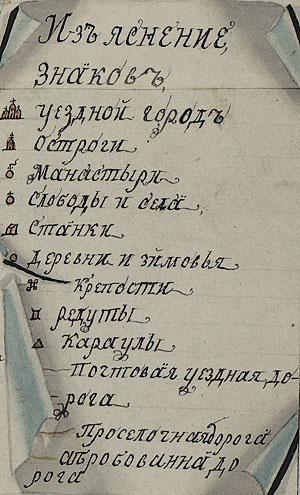 Изъяснение
Знаковъ
уездной городъ
остроги
Манастыри
слободы и села
Станки
деревни и зимовья
Крепости
редуты
Караулы
Почтовая уездная до
рога
Проселочная дорога
апробованна до
рога